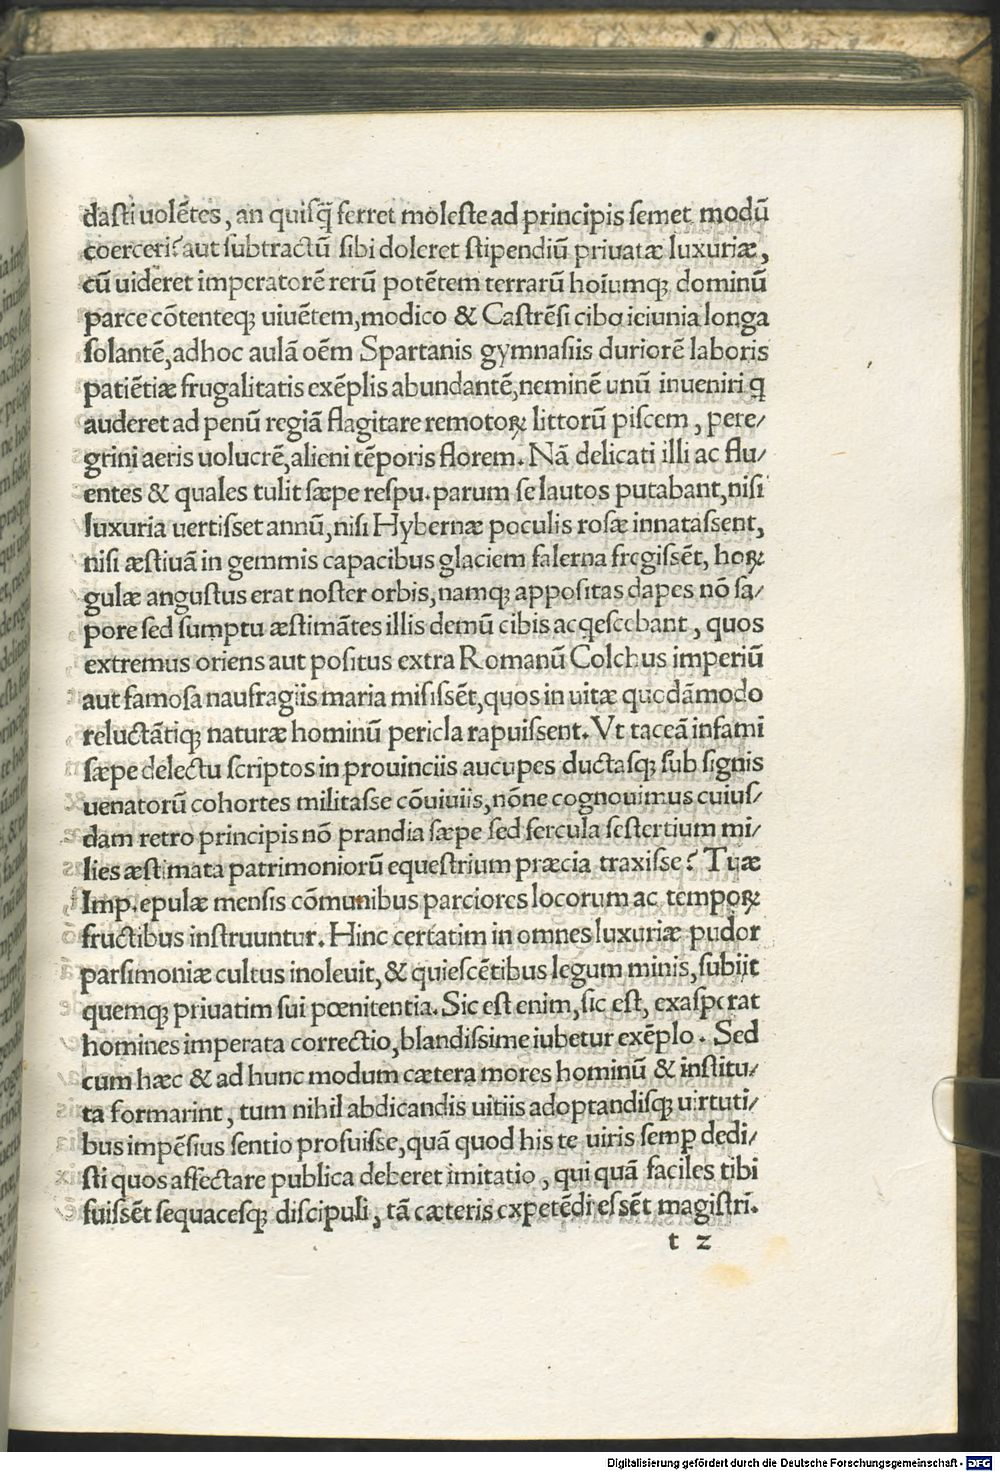 dasti uolētes, an quisq̄ ferret moleste ad principis semet modū
coerceri? aut subtractū sibi doleret stipendiū priuatæ luxuriæ,
cū uideret imperatorē rerū potētem terrarū hoiumq; dominū
parce cōtenteq; uiuētem, modico & Castrēsi cibo iciunia longa
solantē, adhoc aulā oēm Spartanis gymnasiis duriorē laboris
patiētiæ frugalitatis exēplis abundantē, neminē unū inueniri q
auderet ad penū regiā flagitare remotoꝝ littorū piscem, pere/
grini aeris uolucrē, alieni tēporis florem. Nā delicati illi ac flu/
entes & quales tulit sæpe respu. parum se lautos putabant, nisi
luxuria uertisset annū, nisi Hybernæ poculis rosæ innatassent,
nisi æstiuā in gemmis capacibus glaciem falerna fregissēt, hoꝝ
gulæ angustus erat noster orbis, namq; appositas dapes nō sa/
pore sed sumptu æstimātes illis demū cibis acqescebant, quos
extremus oriens aut positus extra Romanū Colchus imperiū
aut famosa naufragiis maria misissēt, quos in uitæ quodāmodo
reluctātiq; naturæ hominū pericla rapuissent. Vt taceā infami
sæpe delectu scriptos in prouinciis aucupes ductasq; sub signis
uenatorū cohortes militasse cōuiuiis, nōne cognouimus cuius/
dam retro principis nō prandia sæpe sed fercula sestertium mi/
lies æstimata patrimoniorū equestrium præcia traxisse? Tuæ
Imp. epulæ mensis cōmunibus parciores locorum ac tempoꝝ
fructibus instruuntur. Hinc certatim in omnes luxuriæ pudor
parsimoniæ cultus inoleuit, & quiescētibus legum minis, subijt
quemq; priuatim sui pœnitentia. Sic est enim, sic est, exasperat
homines imperata correctio, blandissime iubetur exēplo. Sed
cum hæc & ad hunc modum cætera mores hominū & institu/
ta formarint, tum nihil abdicandis uitiis adoptandisq; uirtuti/
bus impēsius sentio profuisse, quā quod his te uiris semp dedi/
sti quos affectare publica deberet imitatio, qui quā faciles tibi
fuissēt sequacesq; discipuli, tā cæteris expetēdi essēt magistri.
t 2
Digitalisierung gefördert durch die Deutsche Forschungsgemeinschaft - DFG